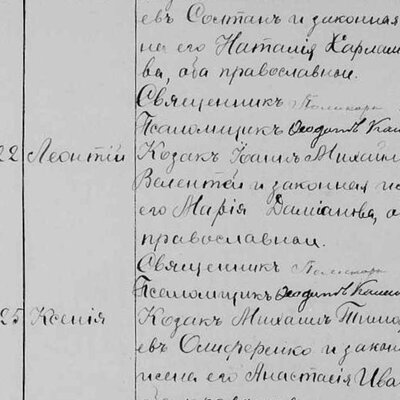 евъ Солтанъ и законная
на его Наталія Харлам
ва, оба православные.
Священникъ Поликарпъ
Псаломщикъ Ѳеодотъ
22 Леонтій Козакъ Іоаннъ Михайл
Валентей и законная
его Марія Даміанова, о
православные.
Священникъ
Псаломщикъ Ѳеодотъ
25 Ксенія Козакъ Михаилъ Тимоѳ
евъ Олиферейко и закон
жена его Анастасія Ива